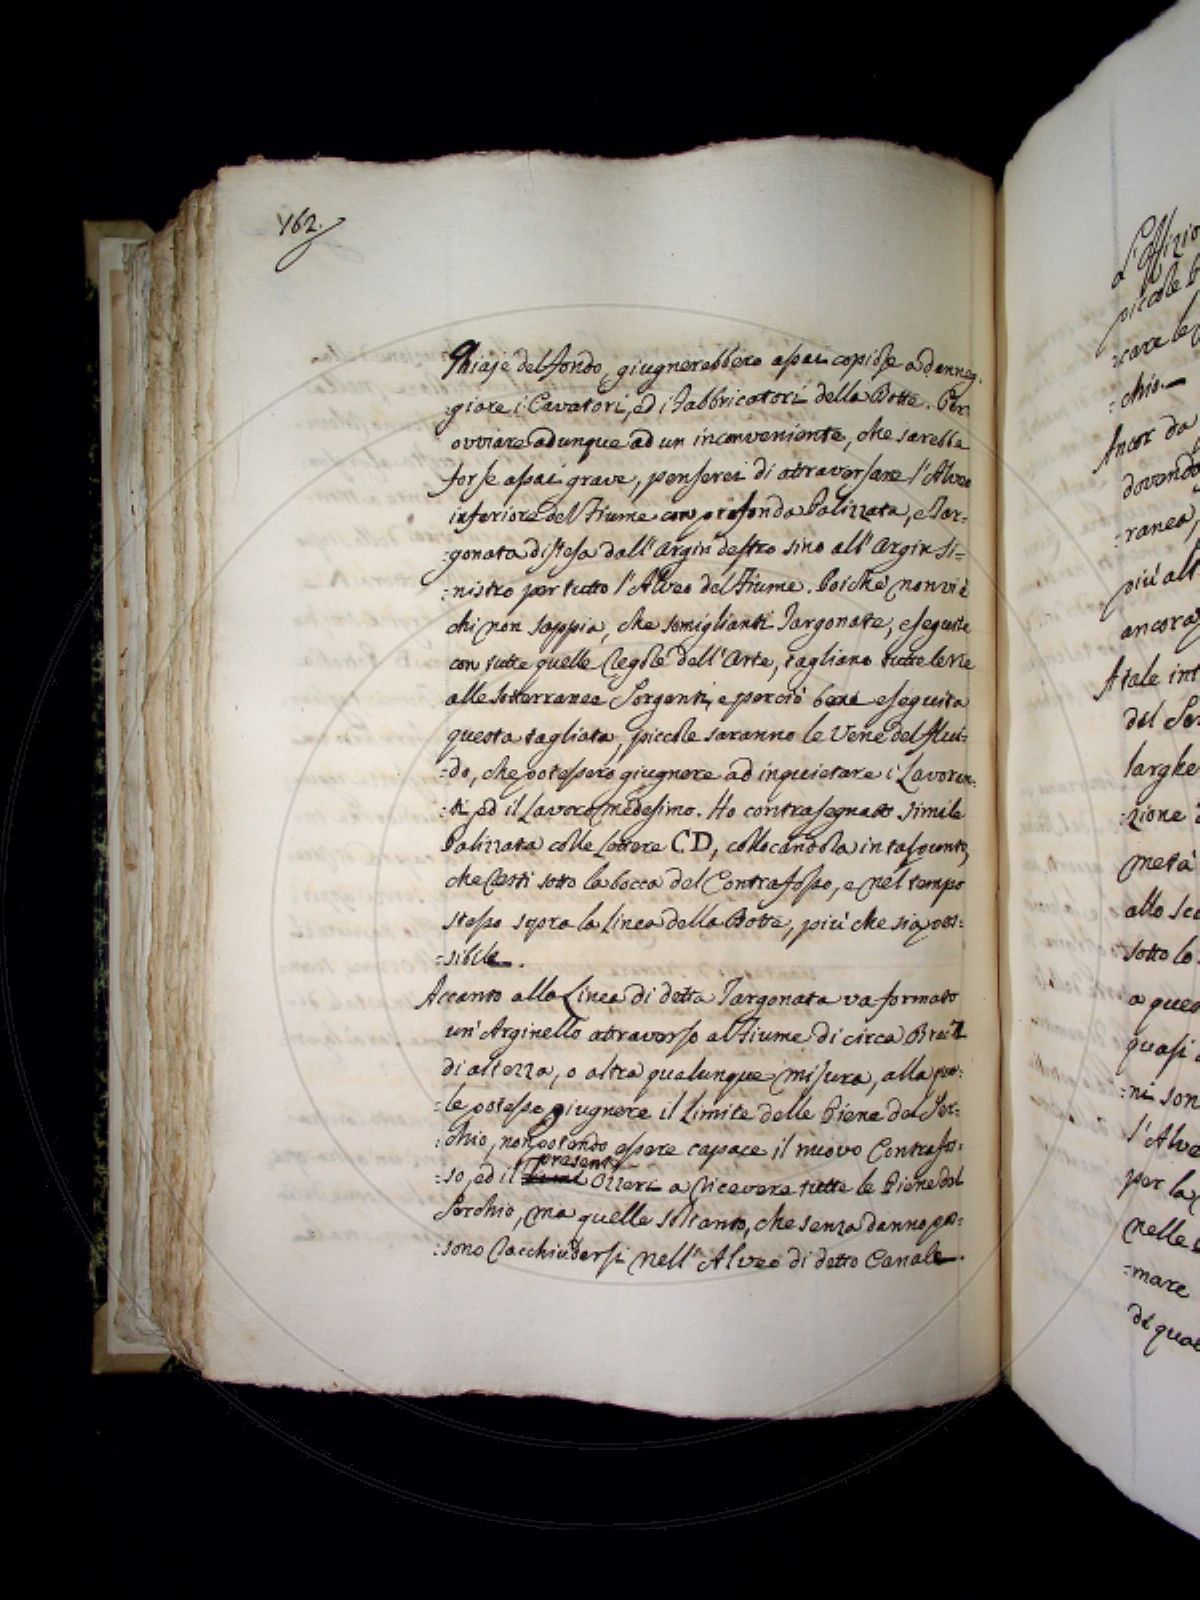 162.
Ghiaje del fondo, giugnerebbero assai copiose a danneg-
:giare i Cavatori, ed i Fabbricatori della Botte. Per
ovviare adunque ad un inconveniente, che sarebbe
forse assai grave, penserei di attraversare l'Alveo
inferiore del Fiume con profonda Palizzata, e Tar:
:gonata distesa dall'Argin destro sino all'Argin si=
:nistro per tutto l'Alveo del Fiume. Poichè non vi è
chi non sappia, che somiglianti Targonate, eseguite
con tutte quelle Regole dell'Arte, tagliano tutte le Vie
alle sotterranee Sorgenti, e perciò bene eseguita
questa tagliata, piccole saranno le Vene del flui:
:do, che potessero giugnere ad inquietare i Lavoran:
:ti, ed il Lavoro medesimo. Ho contrasegnato simile
Palizzata colle Lettere CD, collocandola in tal punto,
che resti sotto la bocca del Contrafosso, e nel tempo
stesso sopra la linea della Botte, più che sia pos:
:sibile.
Accanto alla Linea di detta Targonata va formato
un'Arginello attraverso al Fiume di circa Braccia
di altezza, o altra qualunque misura, alla qua:
:le potesse giugnere il Limite delle Piene del Ser:
:chio, non potendo essere capace il nuovo Contrafos:
presente
:so, ed il Ozzeri a ricevere tutte le Piene del
Serchio, ma quelle soltanto, che senza danno pos:
:sono racchiudersi nell'Alveo di detto Canale.
a l'Offizio
piccole
:care le
:chio.
Ancor da
dovendo
:raneo,
più alt
ancora
A tale int
del Ser
larghe
:zione
metà
allo sc
sotto lo
a ques
quasi
:ni son
l'Alve
per la
nelle
:mare
di qua